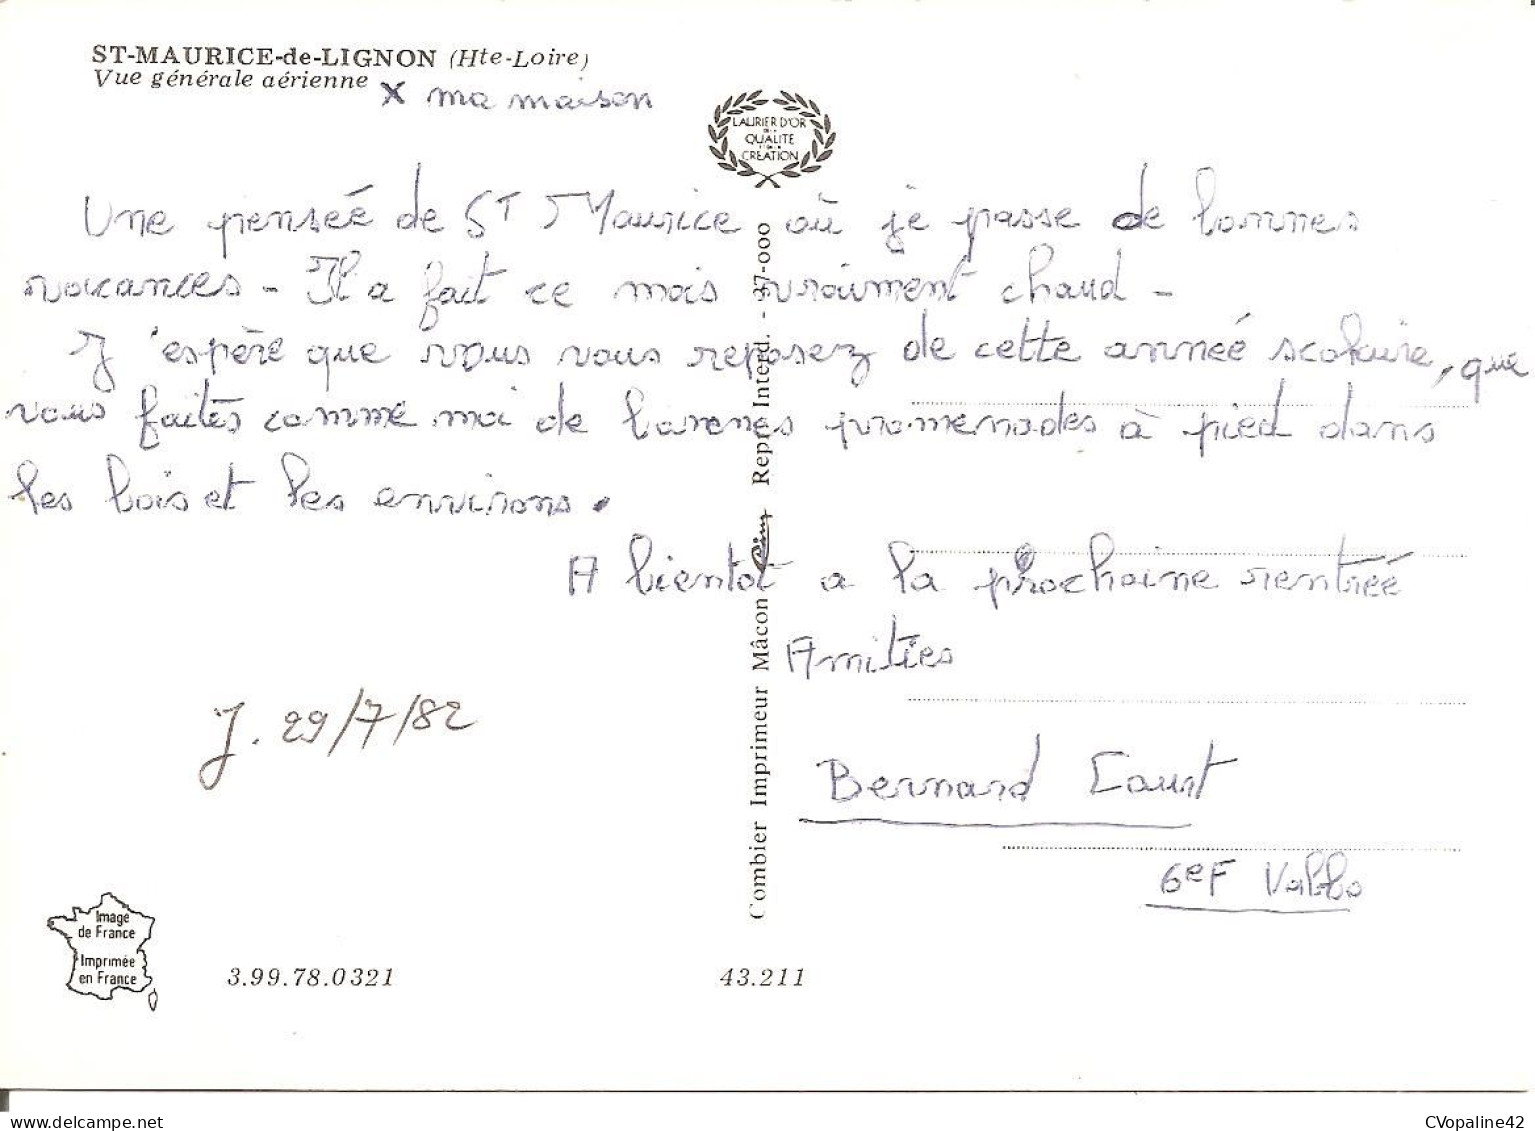 ST-MAURICE-de-LIGNON (Hte-Loire)
Vue générale aérienne
X ma maison
LAURIER D'OR
DE LA
QUALITE
CREATION
Une pensée de St Maurice où je passe de bonnes
vacances - Il a fait ce mois vraiment chaud -
J'espère que vous vous reposez de cette année scolaire, que
vous faites comme moi de bonnes promenades à pied dans
les bois et les environs.
A bientot a la prochaine rentrée
Amitiés
J. 29/7/82
Bernard Court
6eF
Combier Imprimeur Mâcon Repr. Interd. - 37-000
Image
de France
Imprimée
en France
3.99.78.0321
43.211
CVopaline42